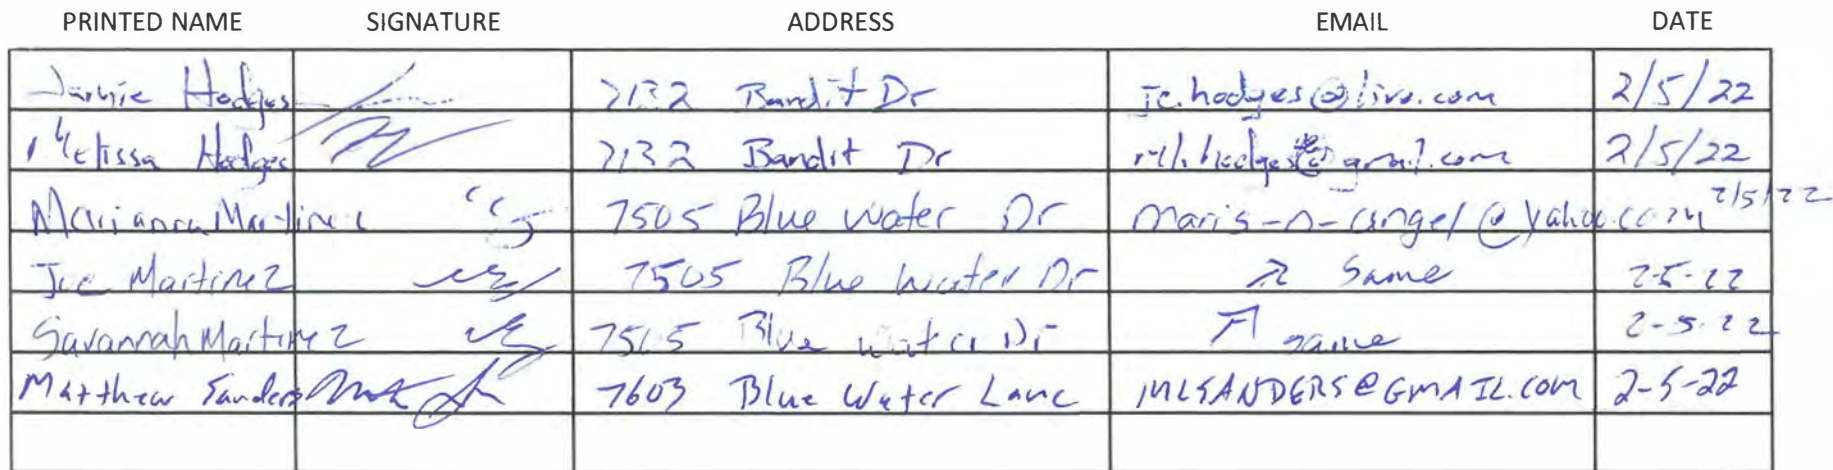 PRINTED NAME SIGNATURE ADDRESS EMAIL DATE
Jamie Hodges 7132 Bandit Dr jc.hodges@live.com 2/5/22
Melissa Hodges 7132 Bandit Dr 2/5/22
Marianna Martinez 7505 Blue Water Dr maris-n-angel@yahoo.com 2/5/22
Joe Martinez 7505 Blue Water Dr Same 2-5-22
Savannah Martinez 7505 Blue water Dr same 2-5-22
Matthew Sanders 7603 Blue Water Lane MLSANDERS@GMAIL.COM 2-5-22